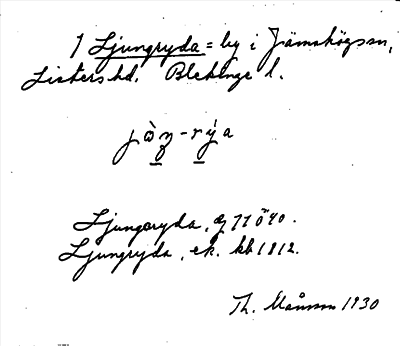 1 Ljungryda = by i Jämshögssn,
Listers hd. Blekinge l.
jòŋ-rýa
Ljungryda, 1840.
Ljungryda, ek. kb 1812.
Th. Månsson 1930